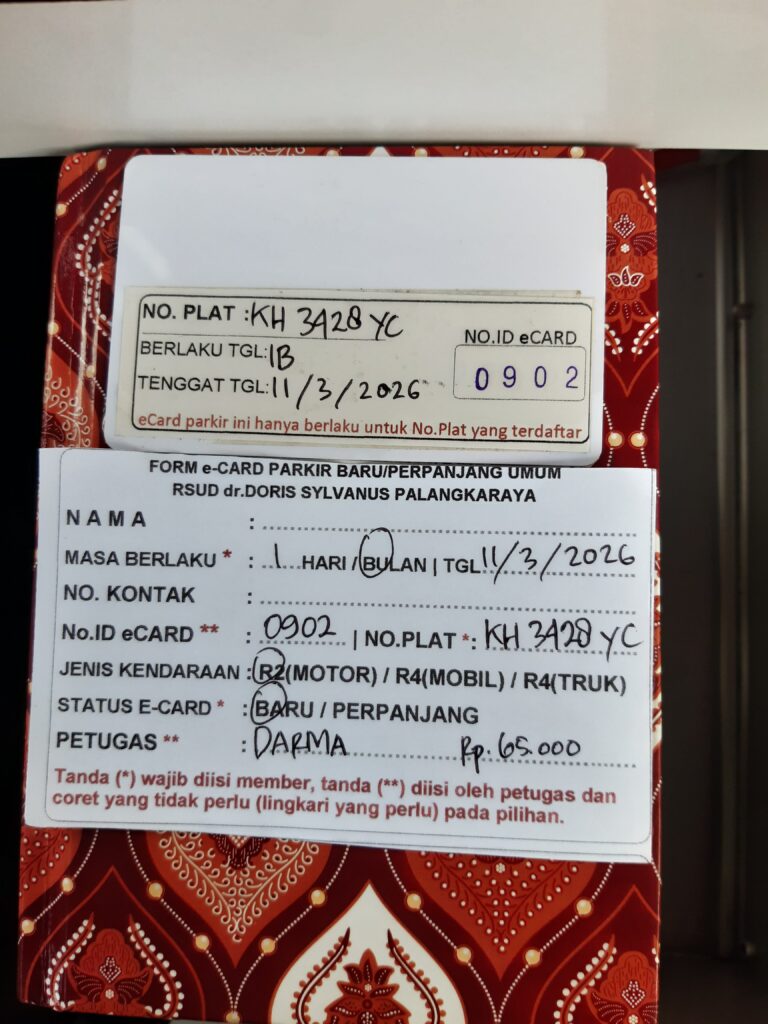 NO. PLAT : KH 3428 YC
BERLAKU TGL: 1B
NO.ID eCARD
TENGGAT TGL: 11/3/2026
0902
eCard parkir ini hanya berlaku untuk No.Plat yang terdaftar
FORM e-CARD PARKIR BARU/PERPANJANG UMUM
RSUD dr.DORIS SYLVANUS PALANGKARAYA
NAMA :
MASA BERLAKU * : 1 HARI / BULAN | TGL 11/3/2026
NO. KONTAK :
No.ID eCARD ** : 0902 | NO.PLAT *: KH 3428 YC
JENIS KENDARAAN : R2(MOTOR) / R4(MOBIL) / R4(TRUK)
STATUS E-CARD * : BARU / PERPANJANG
PETUGAS ** : DARMA Rp. 65.000
Tanda (*) wajib diisi member, tanda (**) diisi oleh petugas dan
coret yang tidak perlu (lingkari yang perlu) pada pilihan.